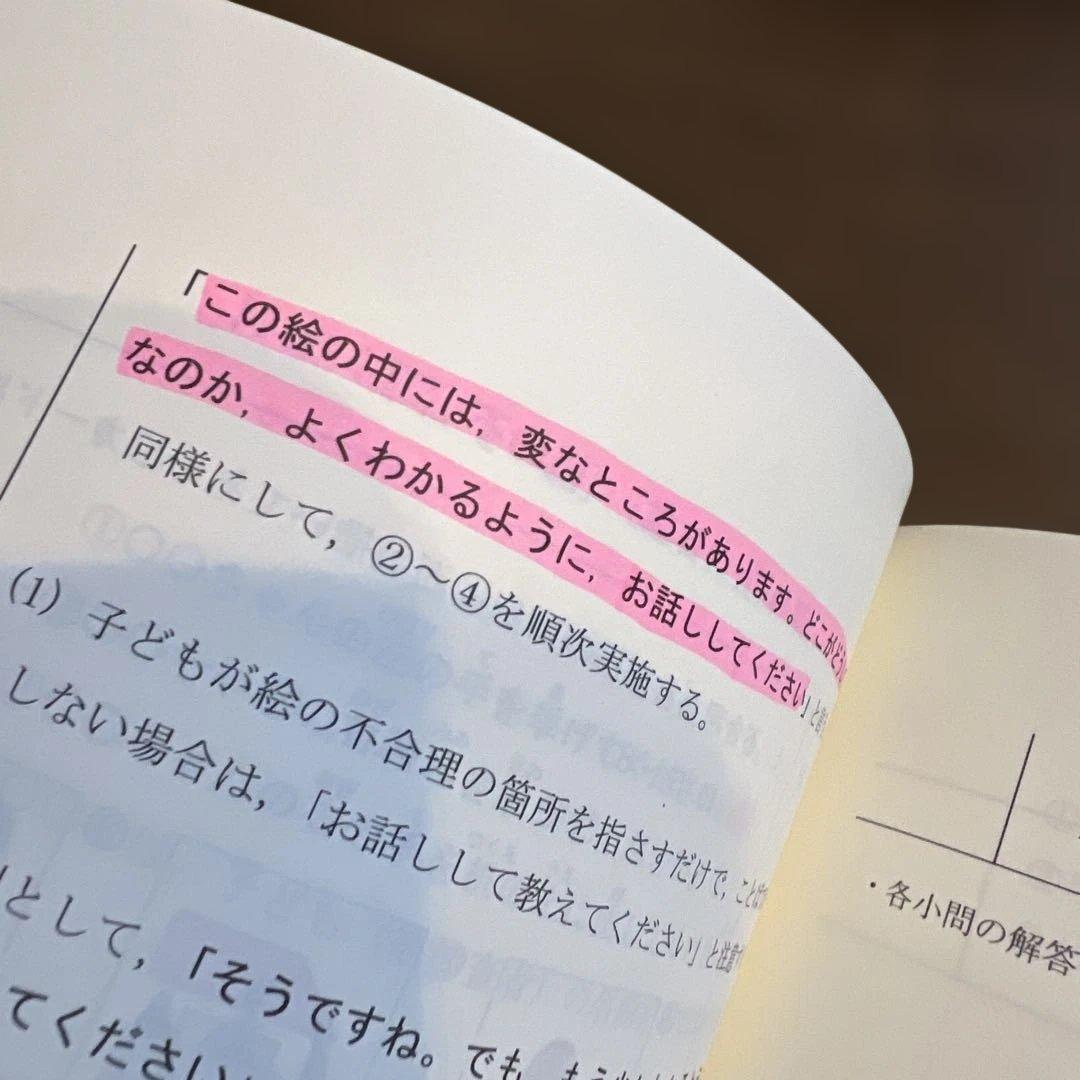 「この絵の中には，変なところがあります。どこがどう
なのか，よくわかるように，お話ししてください」と
同様にして，②～④を順次実施する。
(1) 子どもが絵の不合理の箇所を指さすだけで，ことば
しない場合は，「お話しして教えてください」と注意
として，「そうですね。でも，もう
てください
・各小問の解答